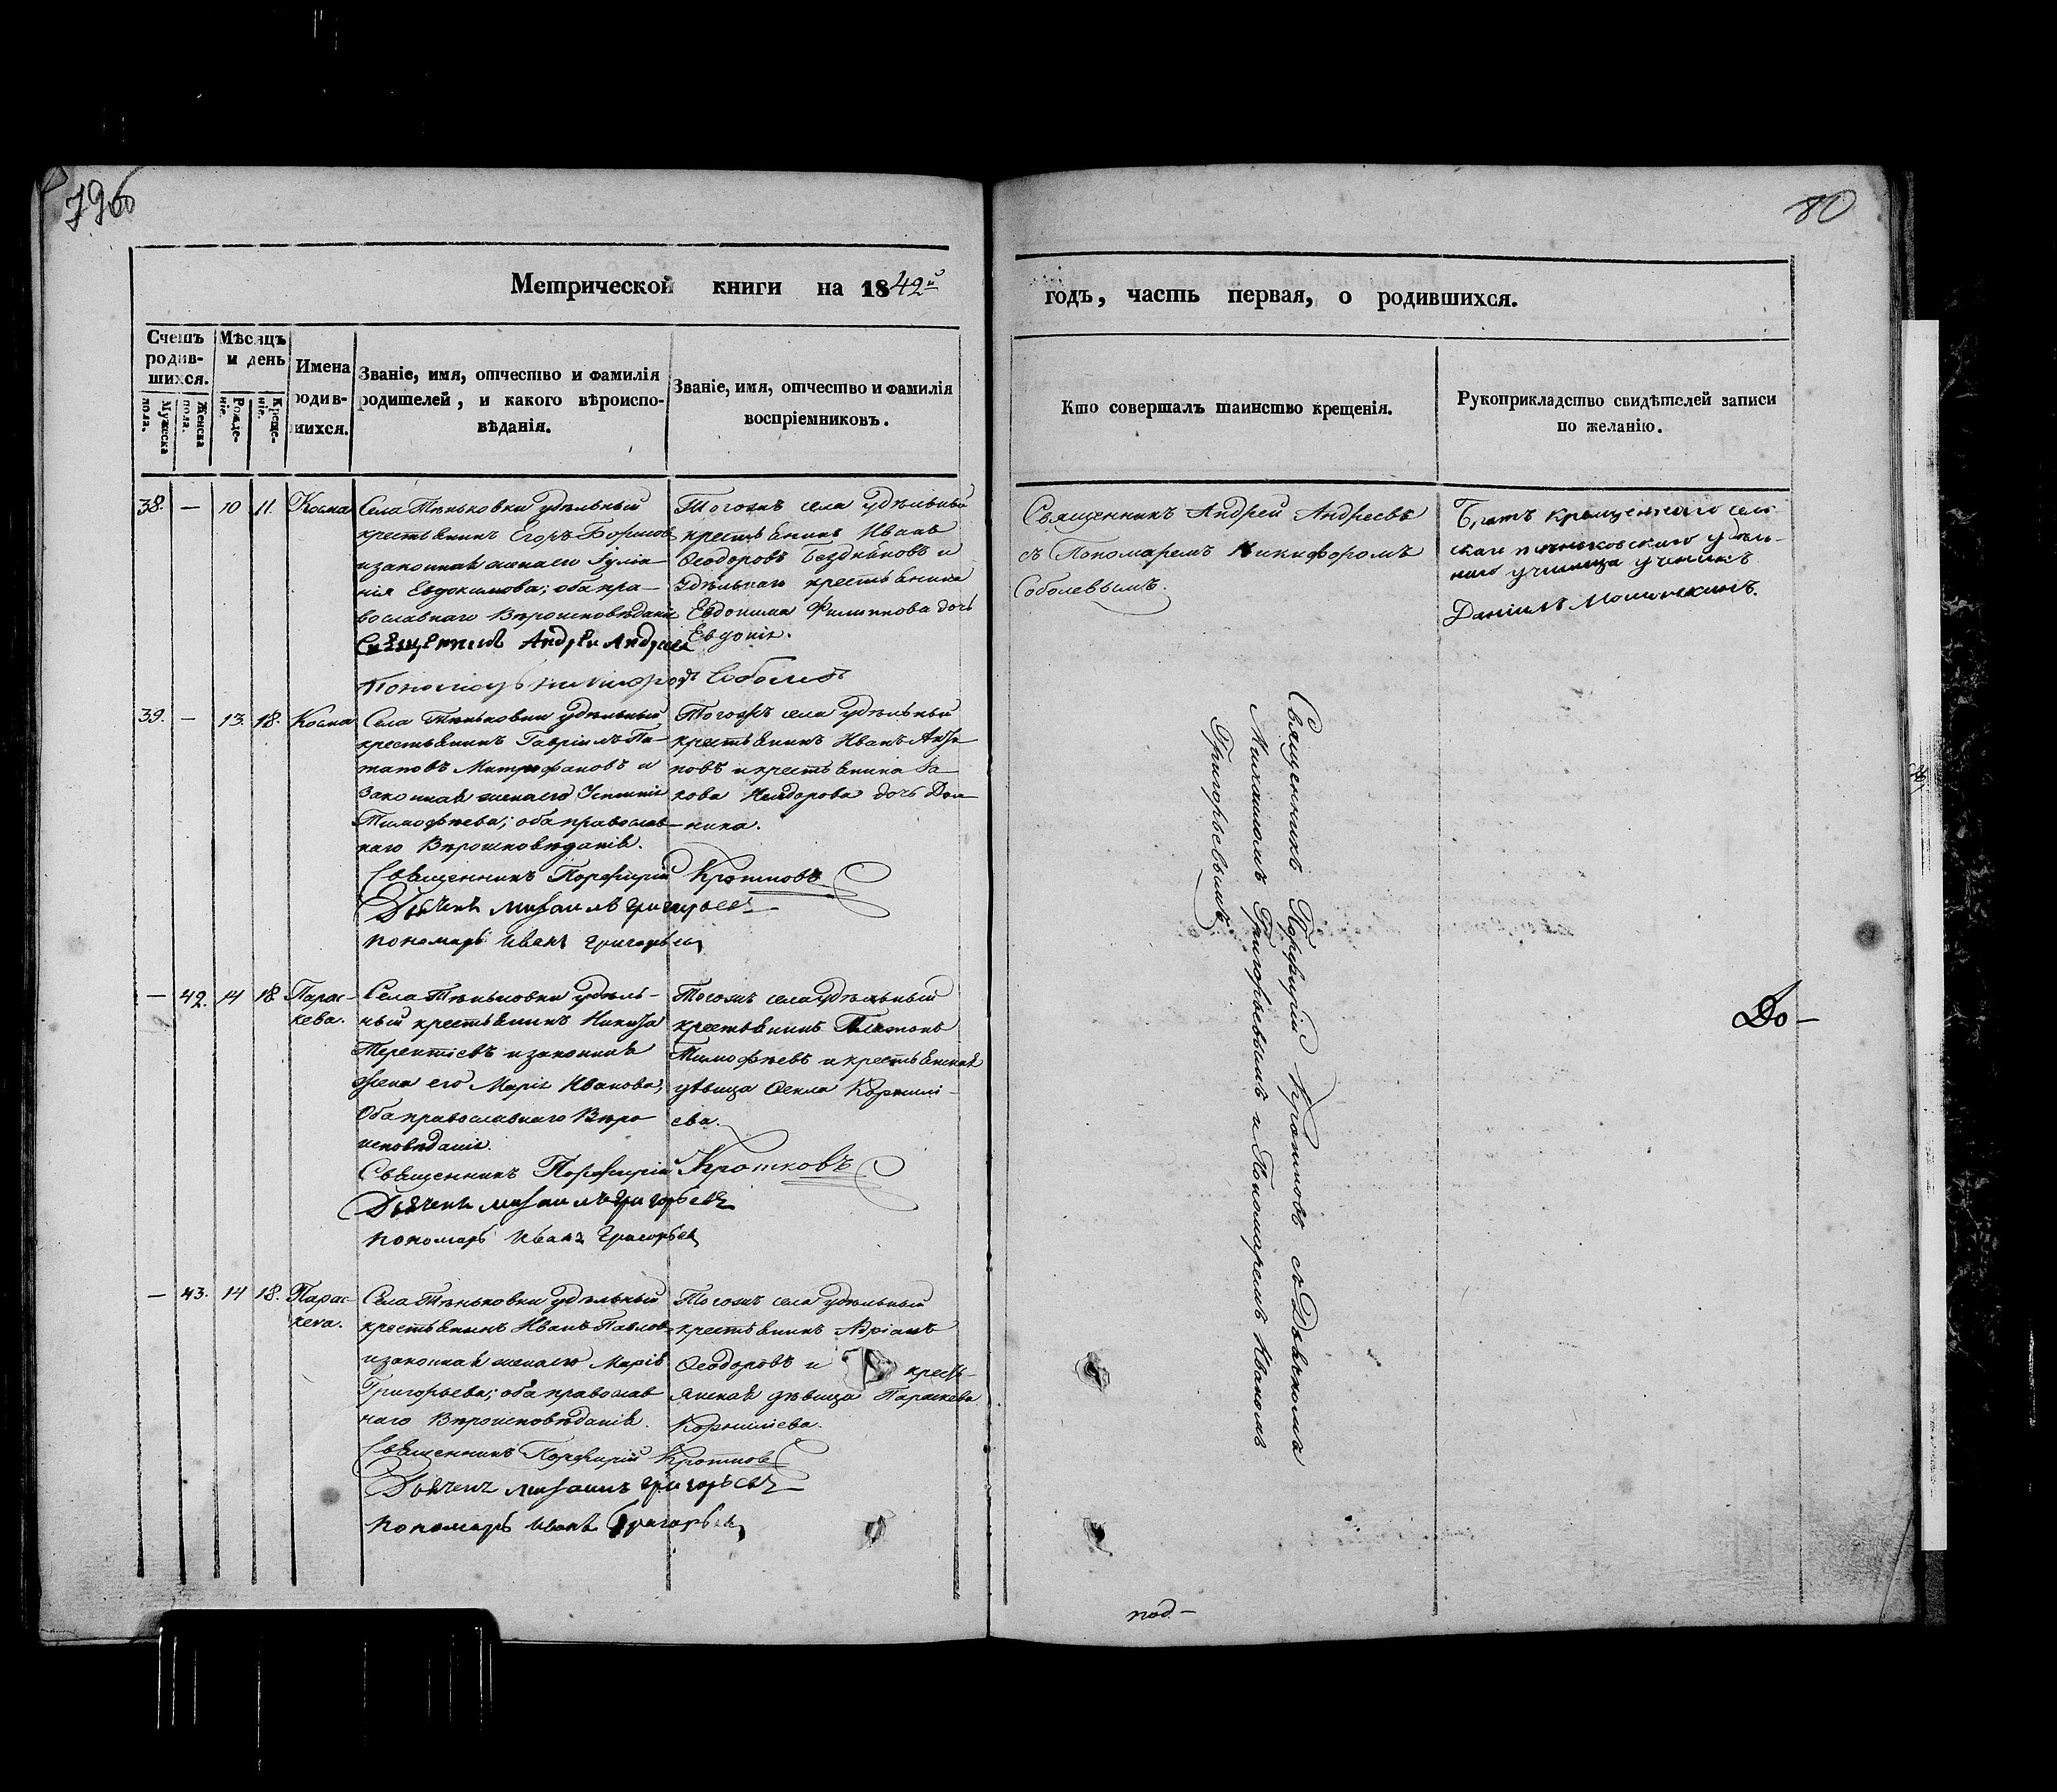 79об
80
Метрической книги на 1842й
годъ, часть первая, о родившихся.
Счетъ родившихся.
Мужеска пола.
Женска пола.
Мѣсяцъ и день
Рождение.
Крещение.
Имена родившихся.
Званіе, имя, отчество и фамилія
родителей, и какого вѣроиспо-
вѣданія.
Званіе, имя, отчество и фамилія
воспріемниковъ.
Кто совершалъ таинство крещенія.
Рукоприкладство свидѣтелей записи
по желанію.
38. — 10 11. Косма
Села Тѣньковки удѣльный
крестьянинъ Егоръ Борисовъ
и законная жена его Іулiа-
нія Евдокимова; оба пра-
вославнаго Вѣроисповѣданія
Священникъ Андрей Андреевъ
Пономарь Никифоръ Соболевъ
Тогожъ села удѣльный
крестьянинъ Иванъ
Ѳеодоровъ Бездѣновъ и
удѣльнаго крестьянина
Евдокима Филиппова дочь
Евдокія.
Священникъ Андрей Андреевъ
съ Пономаремъ Никифоромъ
Соболевымъ.
Братъ крещеннаго сель-
скаго тѣньковскаго удѣль-
наго училища ученикъ
Даніилъ
39. — 13. 18. Косма
Села Тѣньковки удѣльный
крестьянинъ Гавріилъ По-
таповъ Митрофановъ и
законная жена его
Тимофѣева; оба православ-
наго Вѣроисповѣданія.
Священникъ Порфирій Кротковъ
Дьячекъ Михаилъ Григорьевъ
пономарь Иванъ Григорьевъ
Тогожъ села удѣльный
крестьянинъ Иванъ
и крестьянина Іа-
кова дочь Дом-
ника.
— 42. 14 18. Парас-
кева.
Села Тѣньковки удѣль-
ный крестьянинъ Никита
Терентіевъ и законная
жена его Марія Иванова,
Оба православнаго Вѣро
исповѣданія.
Священникъ Порфирій Кротковъ
Дьячекъ Михаилъ Григорьевъ
пономарь Иванъ Григорьевъ
Тогожъ села удѣльный
крестьянинъ Платонъ
Тимофѣевъ и крестьянская
дѣвица Ѳекла Корнилі-
ева.
— 43. 14 18. Парас-
кева.
Села Тѣньковки удѣльный
крестьянинъ Иванъ Павловъ
и законная жена его Марія
Григорьева; оба православ
наго Вѣроисповѣданія.
Священникъ Порфирій Кротковъ
Дьячекъ Михаилъ Григорьевъ
пономарь Иванъ Григорьевъ
Тогожъ села удѣльный
крестьянинъ Адріанъ
Ѳеодоровъ и кресть-
янская дѣвица Параскева
Корниліева.
Священникъ Порфирій Кротковъ съ Дьячкомъ
Михаиломъ Григорьевымъ и Пономаремъ Иваномъ
Григорьевымъ
До-
под-